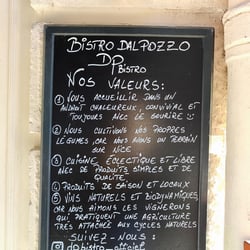 BISTRO DALPOZZO
DP BISTRO
NOS VALEURS :
① VOUS ACCUEILLIR DANS UN
ENDROIT CHALEUREUX, CONVIVIAL ET
TOUJOURS AVEC LE SOURIRE
② NOUS CULTIVONS NOS PROPRES
LÉGUMES, CAR NOUS AVONS UN TERRAIN
SUR NICE
③ CUISINE ÉCLECTIQUE ET LIBRE
AVEC DE PRODUITS SIMPLES ET DE
QUALITÉ
④ PRODUITS DE SAISON ET LOCAUX
⑤ VINS NATURELS ET BIODYNAMIQUES
CAR NOUS AIMONS LES VIGNERONS
QUI PRATIQUENT UNE AGRICULTURE
TRÈS ATTACHÉE AUX CYCLES NATURELS
SUIVEZ-NOUS :
dp.bistro_officiel